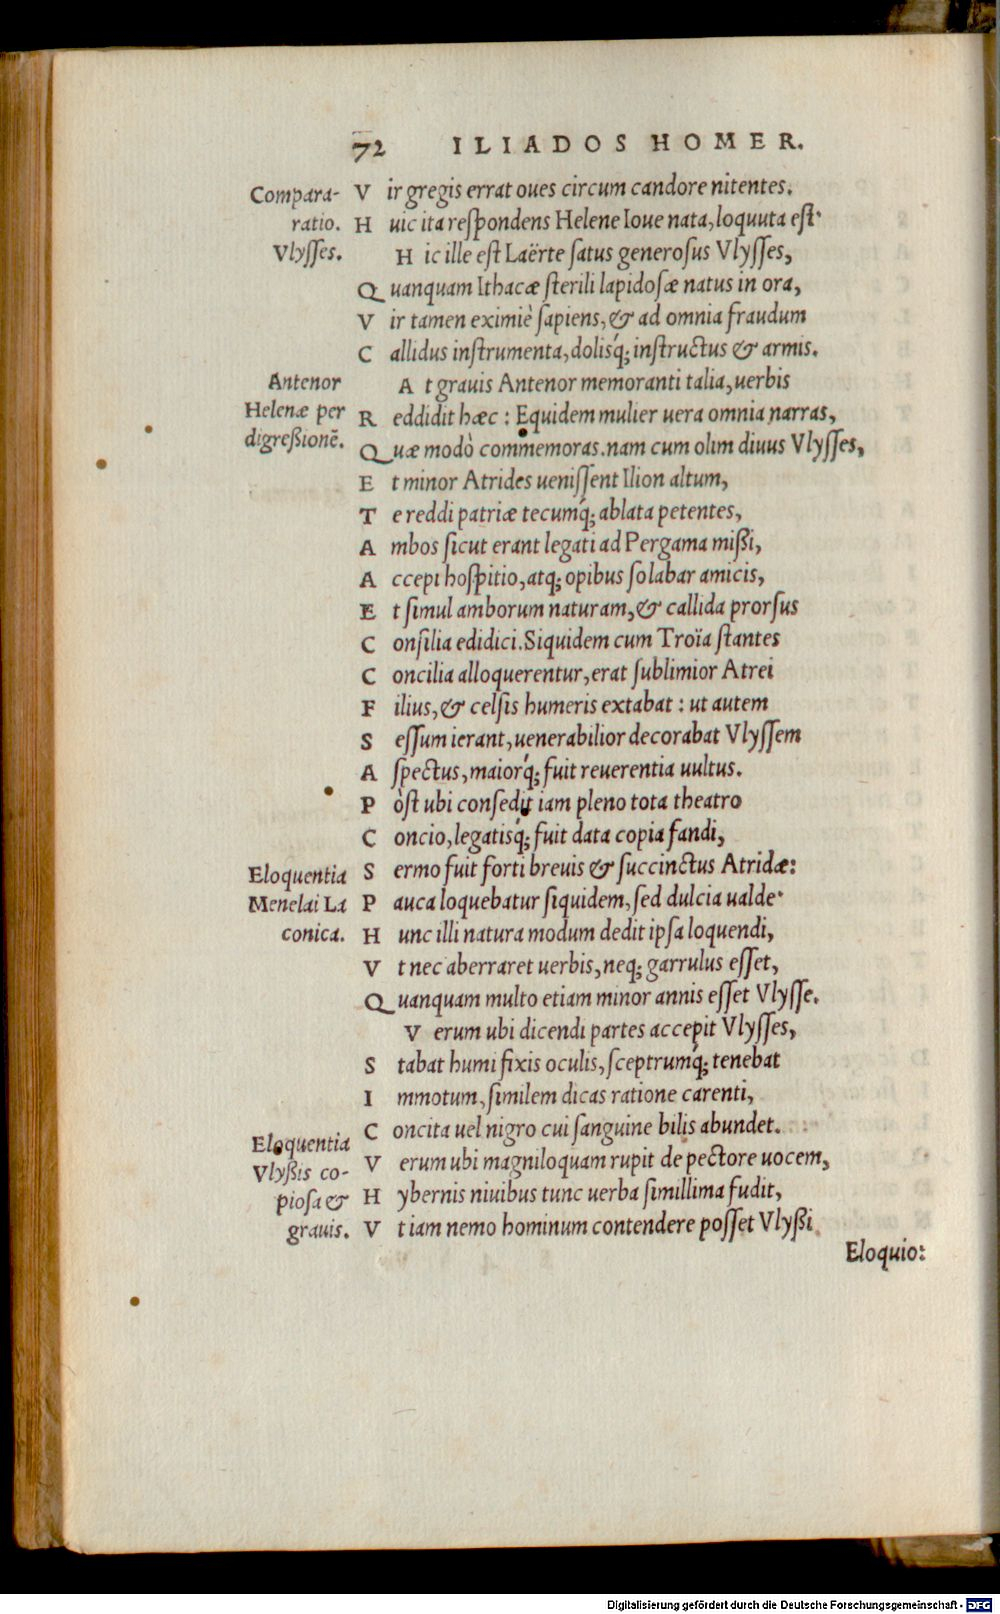 72 ILIADOS HOMER.
Compara-
ratio.
Vlysses.
Vir gregis errat oues circum candore nitentes.
Huic ita respondens Helene Ioue nata, loquuta est.
Hic ille est Laërte satus generosus Vlysses,
Quanquam Ithacæ sterili lapidosæ natus in ora,
Vir tamen eximiè sapiens, & ad omnia fraudum
Callidus instrumenta, dolisq́; instructus & armis.
Antenor
Helenæ per
digreßionē.
At grauis Antenor memoranti talia, uerbis
Reddidit hæc: Equidem mulier uera omnia narras,
Quæ modò commemoras. nam cum olim diuus Vlysses,
Et minor Atrides uenissent Ilion altum,
Te reddi patriæ tecumq́; ablata petentes,
Ambos sicut erant legati ad Pergama mißi,
Accepi hospitio, atq; opibus solabar amicis,
Et simul amborum naturam, & callida prorsus
Consilia edidici. Siquidem cum Troïa stantes
Concilia alloquerentur, erat sublimior Atrei
Filius, & celsis humeris extabat: ut autem
Sessum ierant, uenerabilior decorabat Vlyssem
Aspectus, maiorq́; fuit reuerentia uultus.
Pòst ubi consedit iam pleno tota theatro
Concio, legatisq́; fuit data copia fandi,
Eloquentia
Menelai La
conica.
Sermo fuit forti breuis & succinctus Atridæ:
Pauca loquebatur siquidem, sed dulcia ualde.
Hunc illi natura modum dedit ipsa loquendi,
Vt nec aberraret uerbis, neq; garrulus esset,
Quanquam multo etiam minor annis esset Vlysse.
Verum ubi dicendi partes accepit Vlysses,
Stabat humi fixis oculis, sceptrumq́; tenebat
Immotum, similem dicas ratione carenti,
Concita uel nigro cui sanguine bilis abundet.
Eloquentia
Vlyßis co-
piosa &
grauis.
Verum ubi magniloquam rupit de pectore uocem,
Hybernis niuibus tunc uerba simillima fudit,
Vt iam nemo hominum contendere posset Vlyßi
Eloquio:
Digitalisierung gefördert durch die Deutsche Forschungsgemeinschaft - DFG